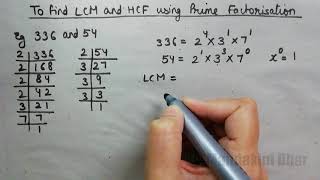 To find LCM and HCF using Prime Factorisation
eg 336 and 54
2 | 336
2 | 168
2 | 84
2 | 42
3 | 21
7 | 7
1
2 | 54
3 | 27
3 | 9
3 | 3
1
336 = 2⁴ × 3¹ × 7¹
54 = 2¹ × 3³ × 7⁰
x⁰ = 1
LCM =